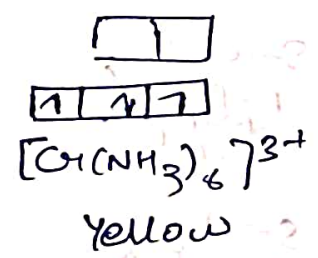 1 1 1
[Cr(NH3)6]3+
Yellow